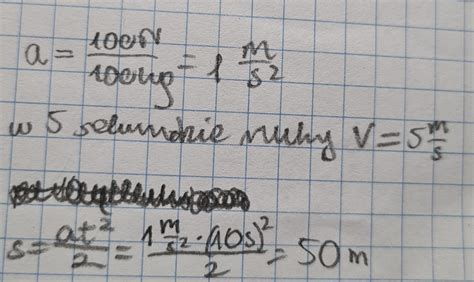 a = 100N/100kg = 1 m/s²
w 5 sekundzie ruchu V = 5 m/s
s = at²/2 = 1 m/s² · (10s)²/2 = 50m